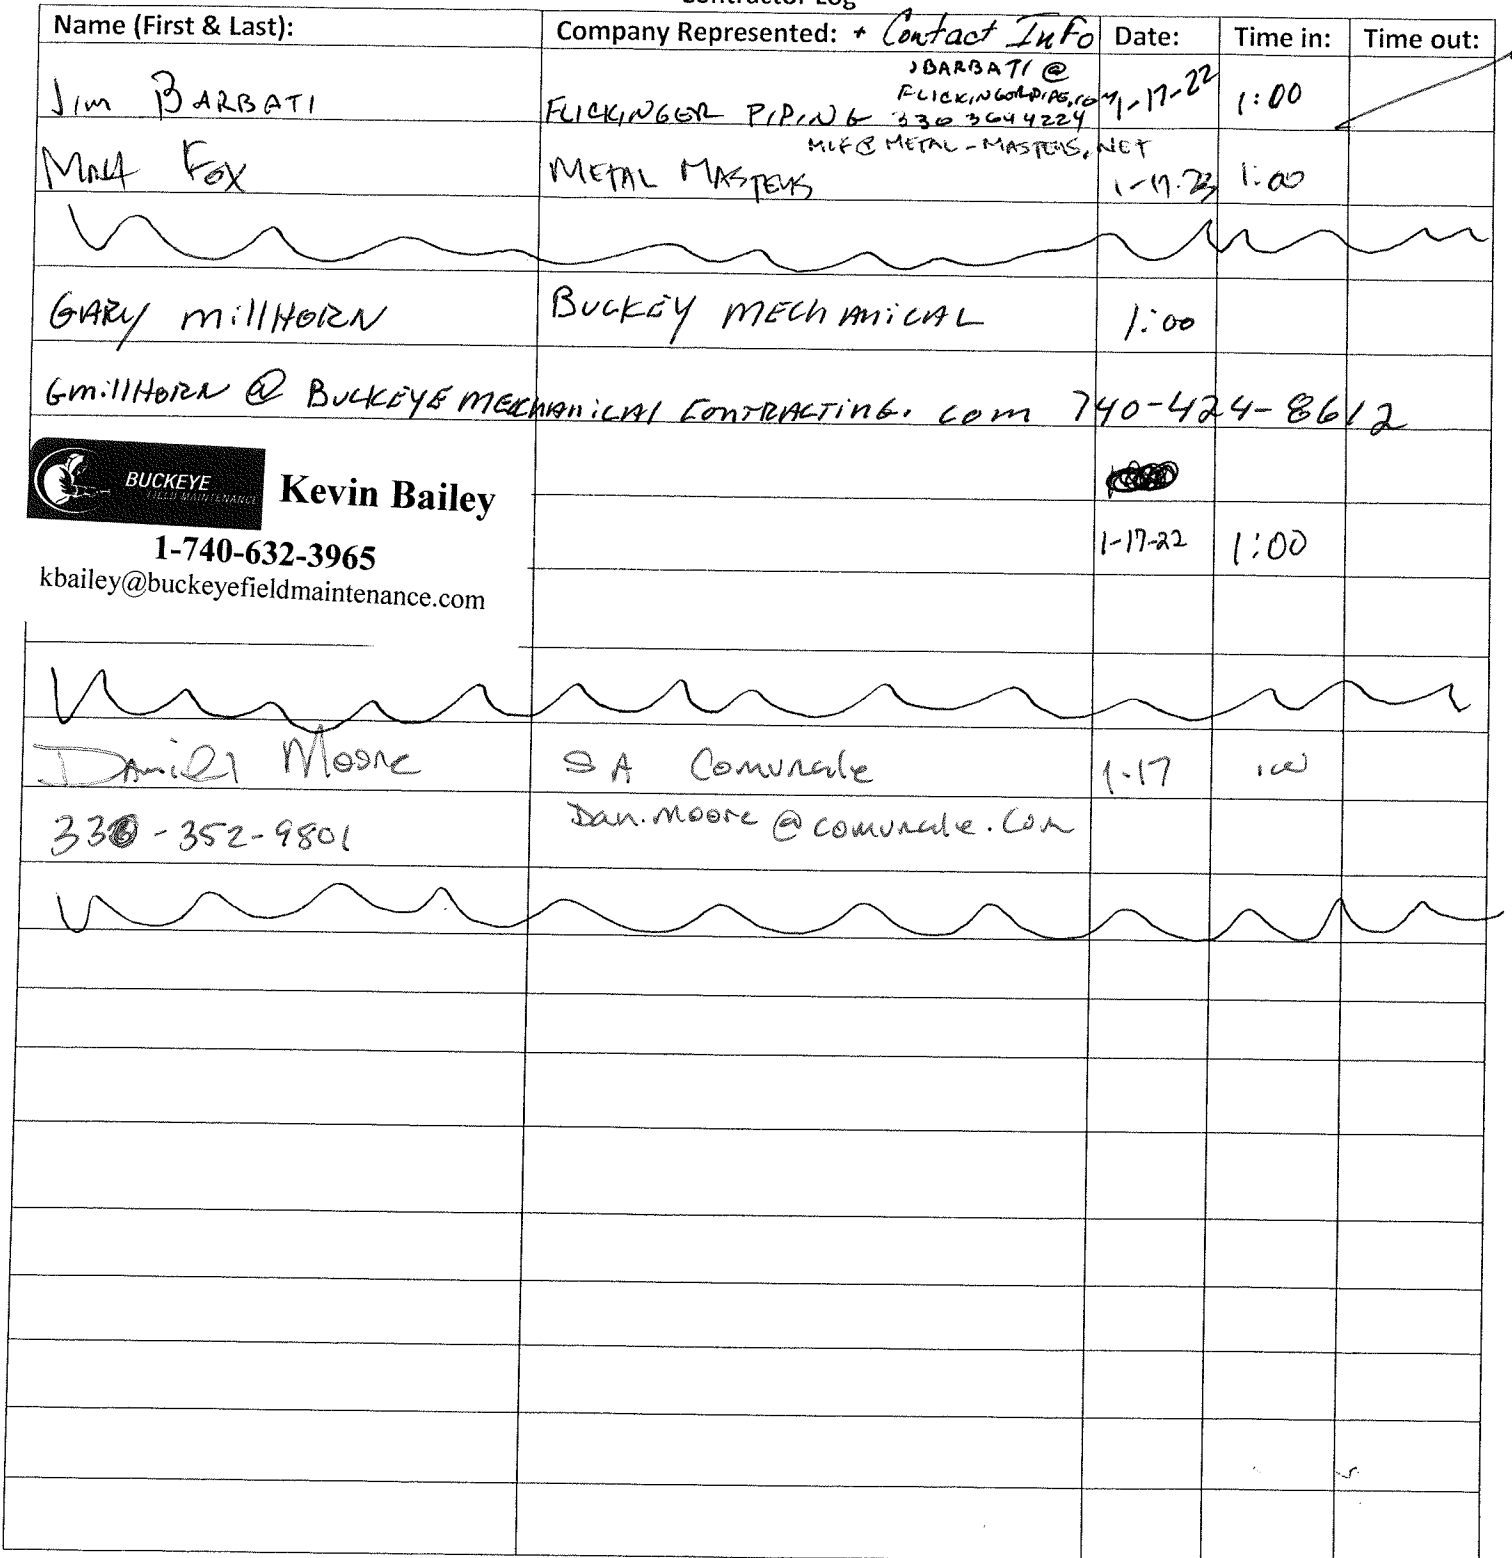 Contractor Log
Name (First & Last): Company Represented: + Contact Info Date: Time in: Time out:
JBARBATI @
FLICKINGERPIPE.COM
Jim BARBATI FLICKINGER PIPING 330 3644224 1-17-22 1:00
MLF@METAL-MASTERS.NET
Matt Fox METAL MASTERS 1-17-23 1:00
GARY MillHORN BUCKEY MECHANICAL 1:00
GmillHORN @ BUCKEYE MECHANICAL CONTRACTING. com 740-424-8612
BUCKEYE
FIELD MAINTENANCE
Kevin Bailey
1-740-632-3965 1-17-22 1:00
kbailey@buckeyefieldmaintenance.com
Daniel Moore SA Comunale 1-17 100
330-352-9801 Dan.moore@comunale.com